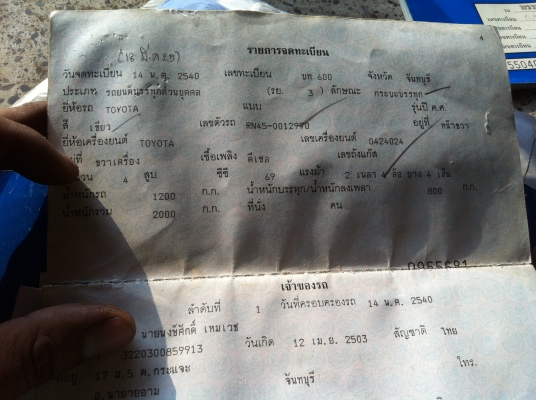 4
(18 มี.ค.20)
รายการจดทะเบียน
วันจดทะเบียน 14 พ.ค. 2540 เลขทะเบียน บท 600 จังหวัด จันทบุรี
ประเภท รถยนต์บรรทุกส่วนบุคคล (รย. 3 ) ลักษณะ กระบะบรรทุก
ยี่ห้อรถ TOYOTA แบบ รุ่นปี ค.ศ.
สี เขียว เลขตัวรถ RN45-0012990 อยู่ที่ หน้าขวา
ยี่ห้อเครื่องยนต์ TOYOTA เลขเครื่องยนต์ 0424024
อยู่ที่ ขวาเครื่อง เชื้อเพลิง ดีเซล เลขถังแก๊ส
จำนวน 4 สูบ ซีซี 69 แรงม้า 2 เพลา 4 ล้อ ยาง 4 เส้น
น้ำหนักรถ 1200 ก.ก. น้ำหนักบรรทุก/น้ำหนักลงเพลา 800 ก.ก.
น้ำหนักรวม 2000 ก.ก. ที่นั่ง คน
0955681
เจ้าของรถ
ลำดับที่ 1 วันที่ครอบครองรถ 14 พ.ค. 2540
นายพงษ์ศักดิ์ เหมเวช
3220300859913 วันเกิด 12 เม.ย. 2503 สัญชาติ ไทย
ที่อยู่ 17 ม.5 ต.กระแจะ โทร.
อ.นายายอาม จันทบุรี